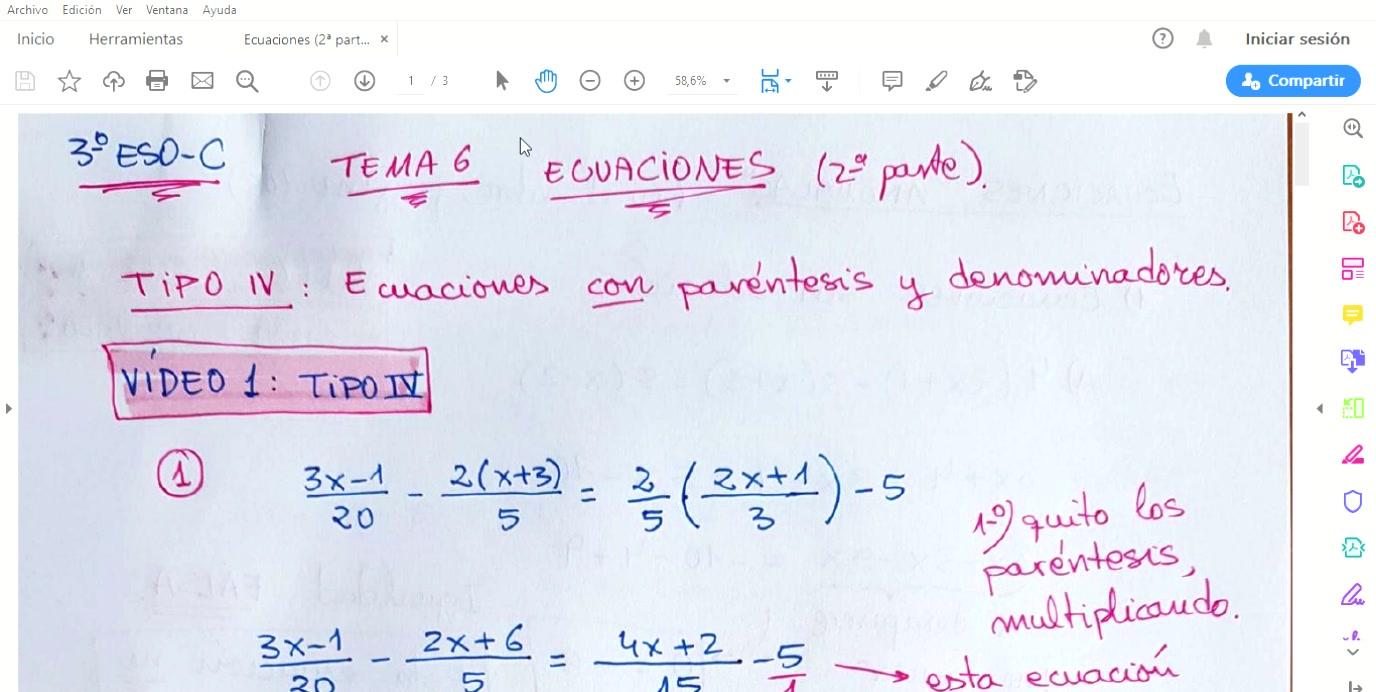 Archivo Edición Ver Ventana Ayuda
Inicio Herramientas Ecuaciones (2ª part... × Iniciar sesión
1 / 3 58,6% Compartir
3º ESO-C TEMA 6 ECUACIONES (2ª parte).
TIPO IV: Ecuaciones con paréntesis y denominadores.
VÍDEO 1: TIPO IV
① (3x-1)/20 - 2(x+3)/5 = 2/5 ((2x+1)/3) - 5
1º) quito los
paréntesis,
multiplicando.
(3x-1)/20 - (2x+6)/5 = (4x+2)/15 - 5/1 → esta ecuación